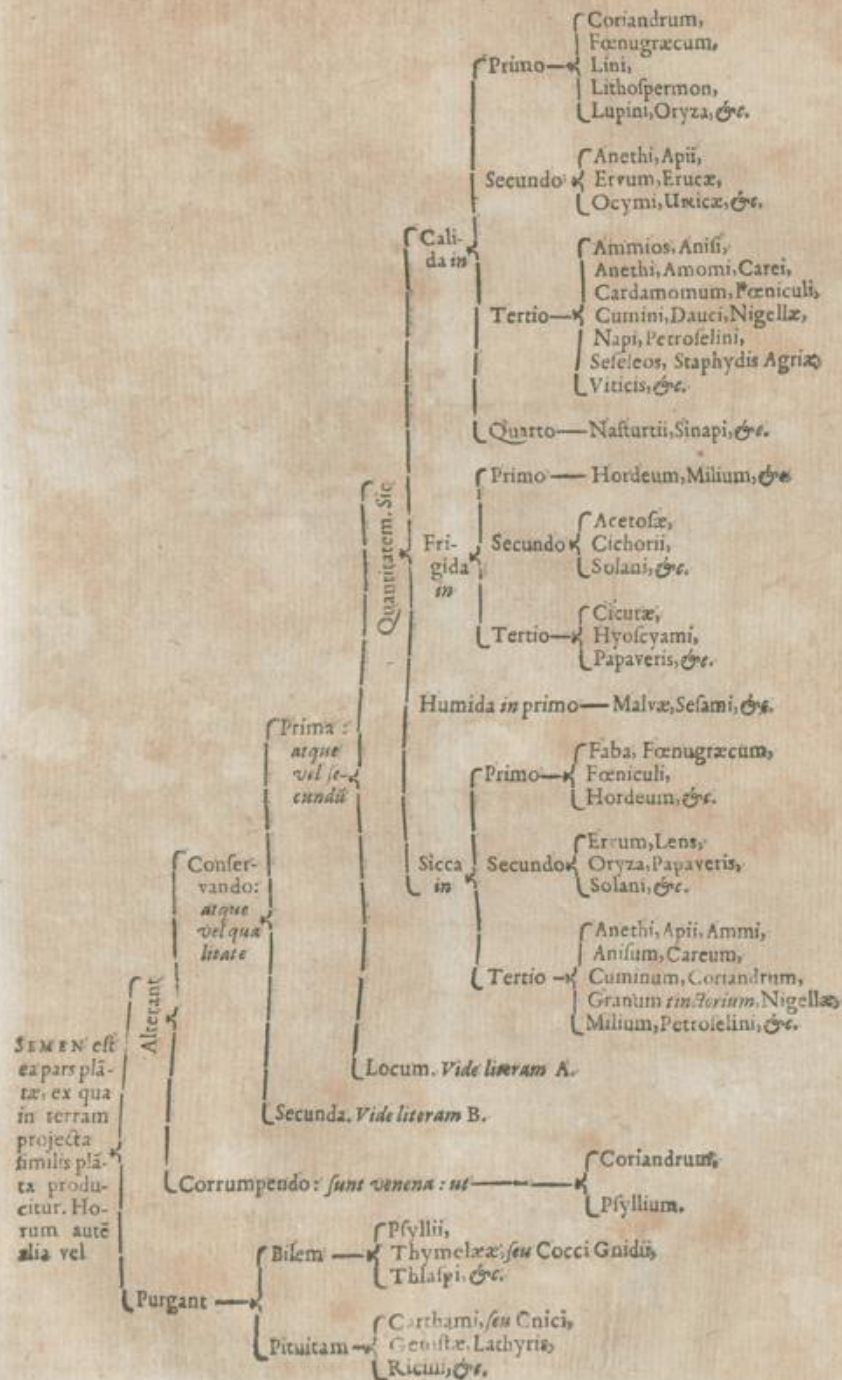 SEMEN eſt
ea pars plā-
tæ, ex qua
in terram
projecta
ſimilis plā-
ta produ-
citur. Ho-
rum autē
alia vel
Alterant
Conſer-
vando:
atque
vel qua
litate
Prima:
atque
vel ſe-
cundū
Quantitatem. Sic
Cali-
da in
Primo
Coriandrum,
Fœnugræcum,
Lini,
Lithoſpermon,
Lupini, Oryza, &c.
Secundo
Anethi, Apii,
Errum, Erucæ,
Ocymi, Urticæ, &c.
Tertio
Ammios, Aniſi,
Anethi, Amomi, Carei,
Cardamomum, Fœniculi,
Cumini, Dauci, Nigellæ,
Napi, Petroſelini,
Seſeleos, Staphydis Agriæ,
Viticis, &c.
Quarto
Naſturtii, Sinapi, &c.
Fri-
gida
in
Primo
Hordeum, Milium, &c
Secundo
Acetoſæ,
Cichorii,
Solani, &c.
Tertio
Cicutæ,
Hyoſcyami,
Papaveris, &c.
Humida in primo
Malvæ, Seſami, &c.
Sicca
in
Primo
Faba, Fœnugræcum,
Fœniculi,
Hordeum, &c.
Secundo
Errum, Lens,
Oryza, Papaveris,
Solani, &c.
Tertio
Anethi, Apii, Ammi,
Aniſum, Careum,
Cuminum, Coriandrum,
Granum tinctorium, Nigellæ,
Milium, Petroſelini, &c.
Locum. Vide literam A.
Secunda. Vide literam B.
Corrumpendo: ſunt venena: ut
Coriandrum,
Pſyllium.
Purgant
Bilem
Pſyllii,
Thymelææ, ſeu Cocci Gnidii,
Thlaſpi, &c.
Pituitam
Carthami, ſeu Cnici,
Geniſtæ, Lathyris,
Ricini, &c.